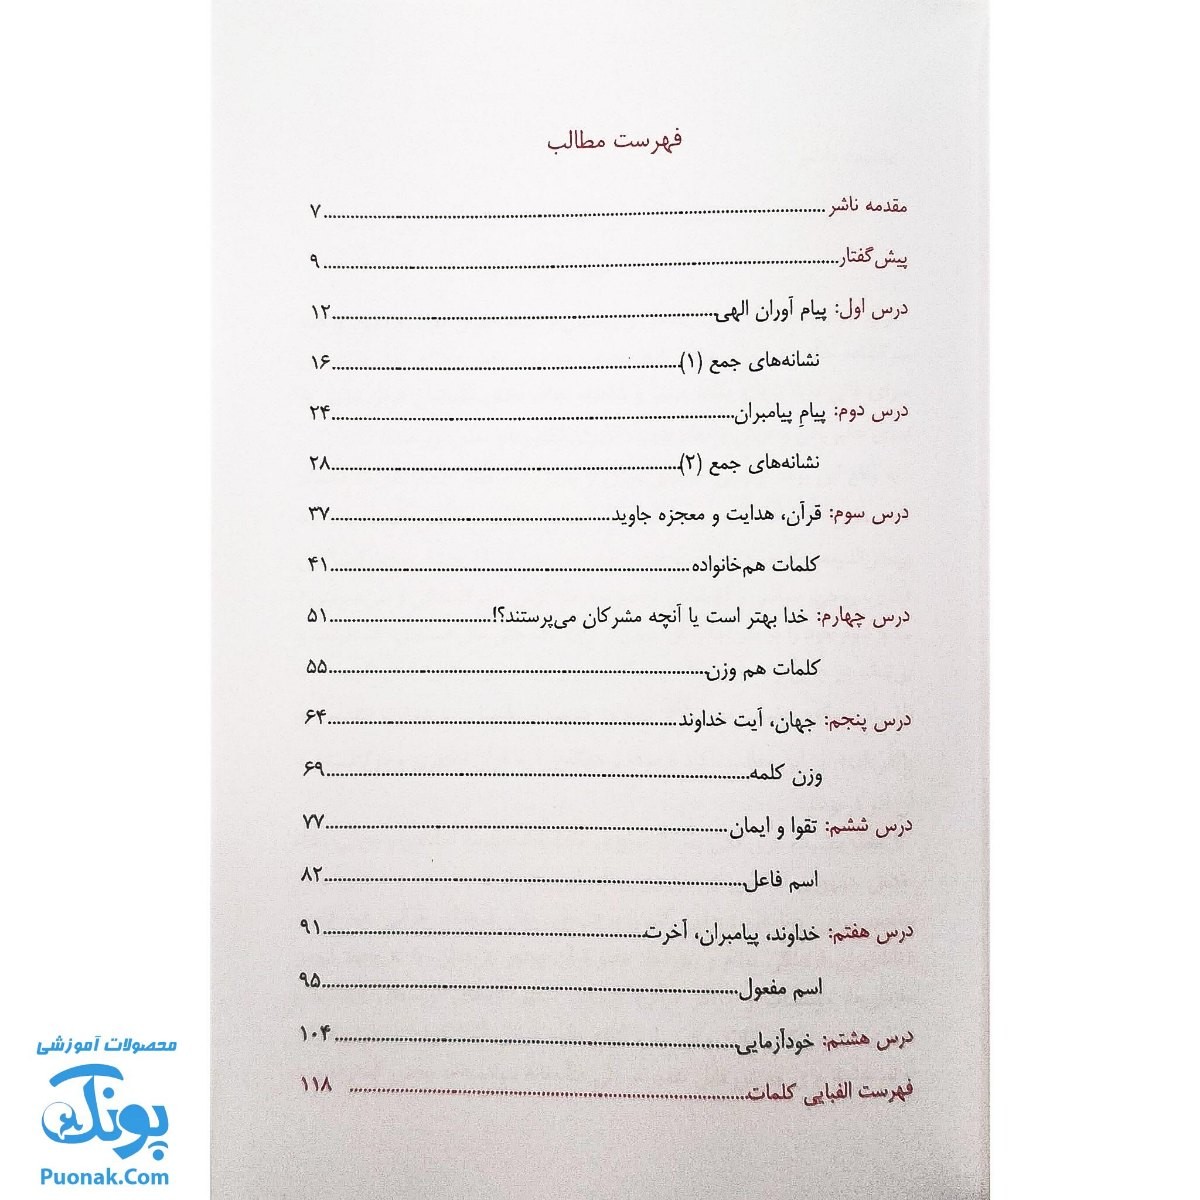 فهرست مطالب
مقدمه ناشر ۷
پیش‌گفتار ۹
درس اول: پیام آوران الهی ۱۲
نشانه‌های جمع (۱) ۱۶
درس دوم: پیامِ پیامبران ۲۴
نشانه‌های جمع (۲) ۲۸
درس سوم: قرآن، هدایت و معجزه جاوید ۳۷
کلمات هم‌خانواده ۴۱
درس چهارم: خدا بهتر است یا آنچه مشرکان می‌پرستند؟! ۵۱
کلمات هم وزن ۵۵
درس پنجم: جهان، آیت خداوند ۶۴
وزن کلمه ۶۹
درس ششم: تقوا و ایمان ۷۷
اسم فاعل ۸۲
درس هفتم: خداوند، پیامبران، آخرت ۹۱
اسم مفعول ۹۵
درس هشتم: خودآزمایی ۱۰۴
فهرست الفبایی کلمات ۱۱۸
محصولات آموزشی
پونک
Puonak.Com